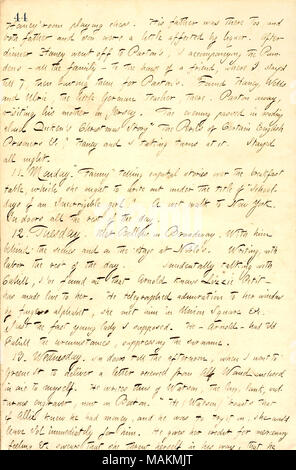 44
Haney's room playing chess. His father was there too and
both father and son were a little affected by liquor. After
dinner Haney went off to Parton's, I accompanying the Poun
dens — all the family — to the house of a friend, where I stayed
till 7, then quitting them for Parton's. Found Haney, Wells
and Ulric, the little German teacher there. Parton away,
visiting his mother in Jersey. The evening passed in reading
aloud Dickens's Christmas Story "The Perils of Certain English
Prisoners &c," Haney and I taking turns at it. Stayed
all night.
11. Monday. "Fanny" telling capital stories over the breakfast
table, which she ought to write out under the title of "School-
days of an Incorrigible girl." A wet walk to New York.
In doors all the rest of the day.
12. Tuesday. Met Cahill in Broadway. With him
behind the scenes and on the stage at Niblo's. Writing, with
labor the rest of the day. Incidentally talking with
Cahill, I've found out that Arnold knows Lizzie
made love to her. He telegraphed admiration to her window
by fingers alphabet, she met him in Union Square &c.
I said the fast young lady I supposed. He — Arnold — had told
Cahill the circumstances, suppressing the surname.
13. Wednesday. In doors till the afternoon, when I went to
street to deliver a letter received from Alf Waud
in one to myself. He writes thus of Watson, the big, lank,
engraver, now in Boston. "He (Watson) boasts that
if Allie knew he had money, and he was to try it on, she would
leave Sol immediately for him. He gives her credit for mercenary
feeling &c, swears that she threw herself in his way, that he